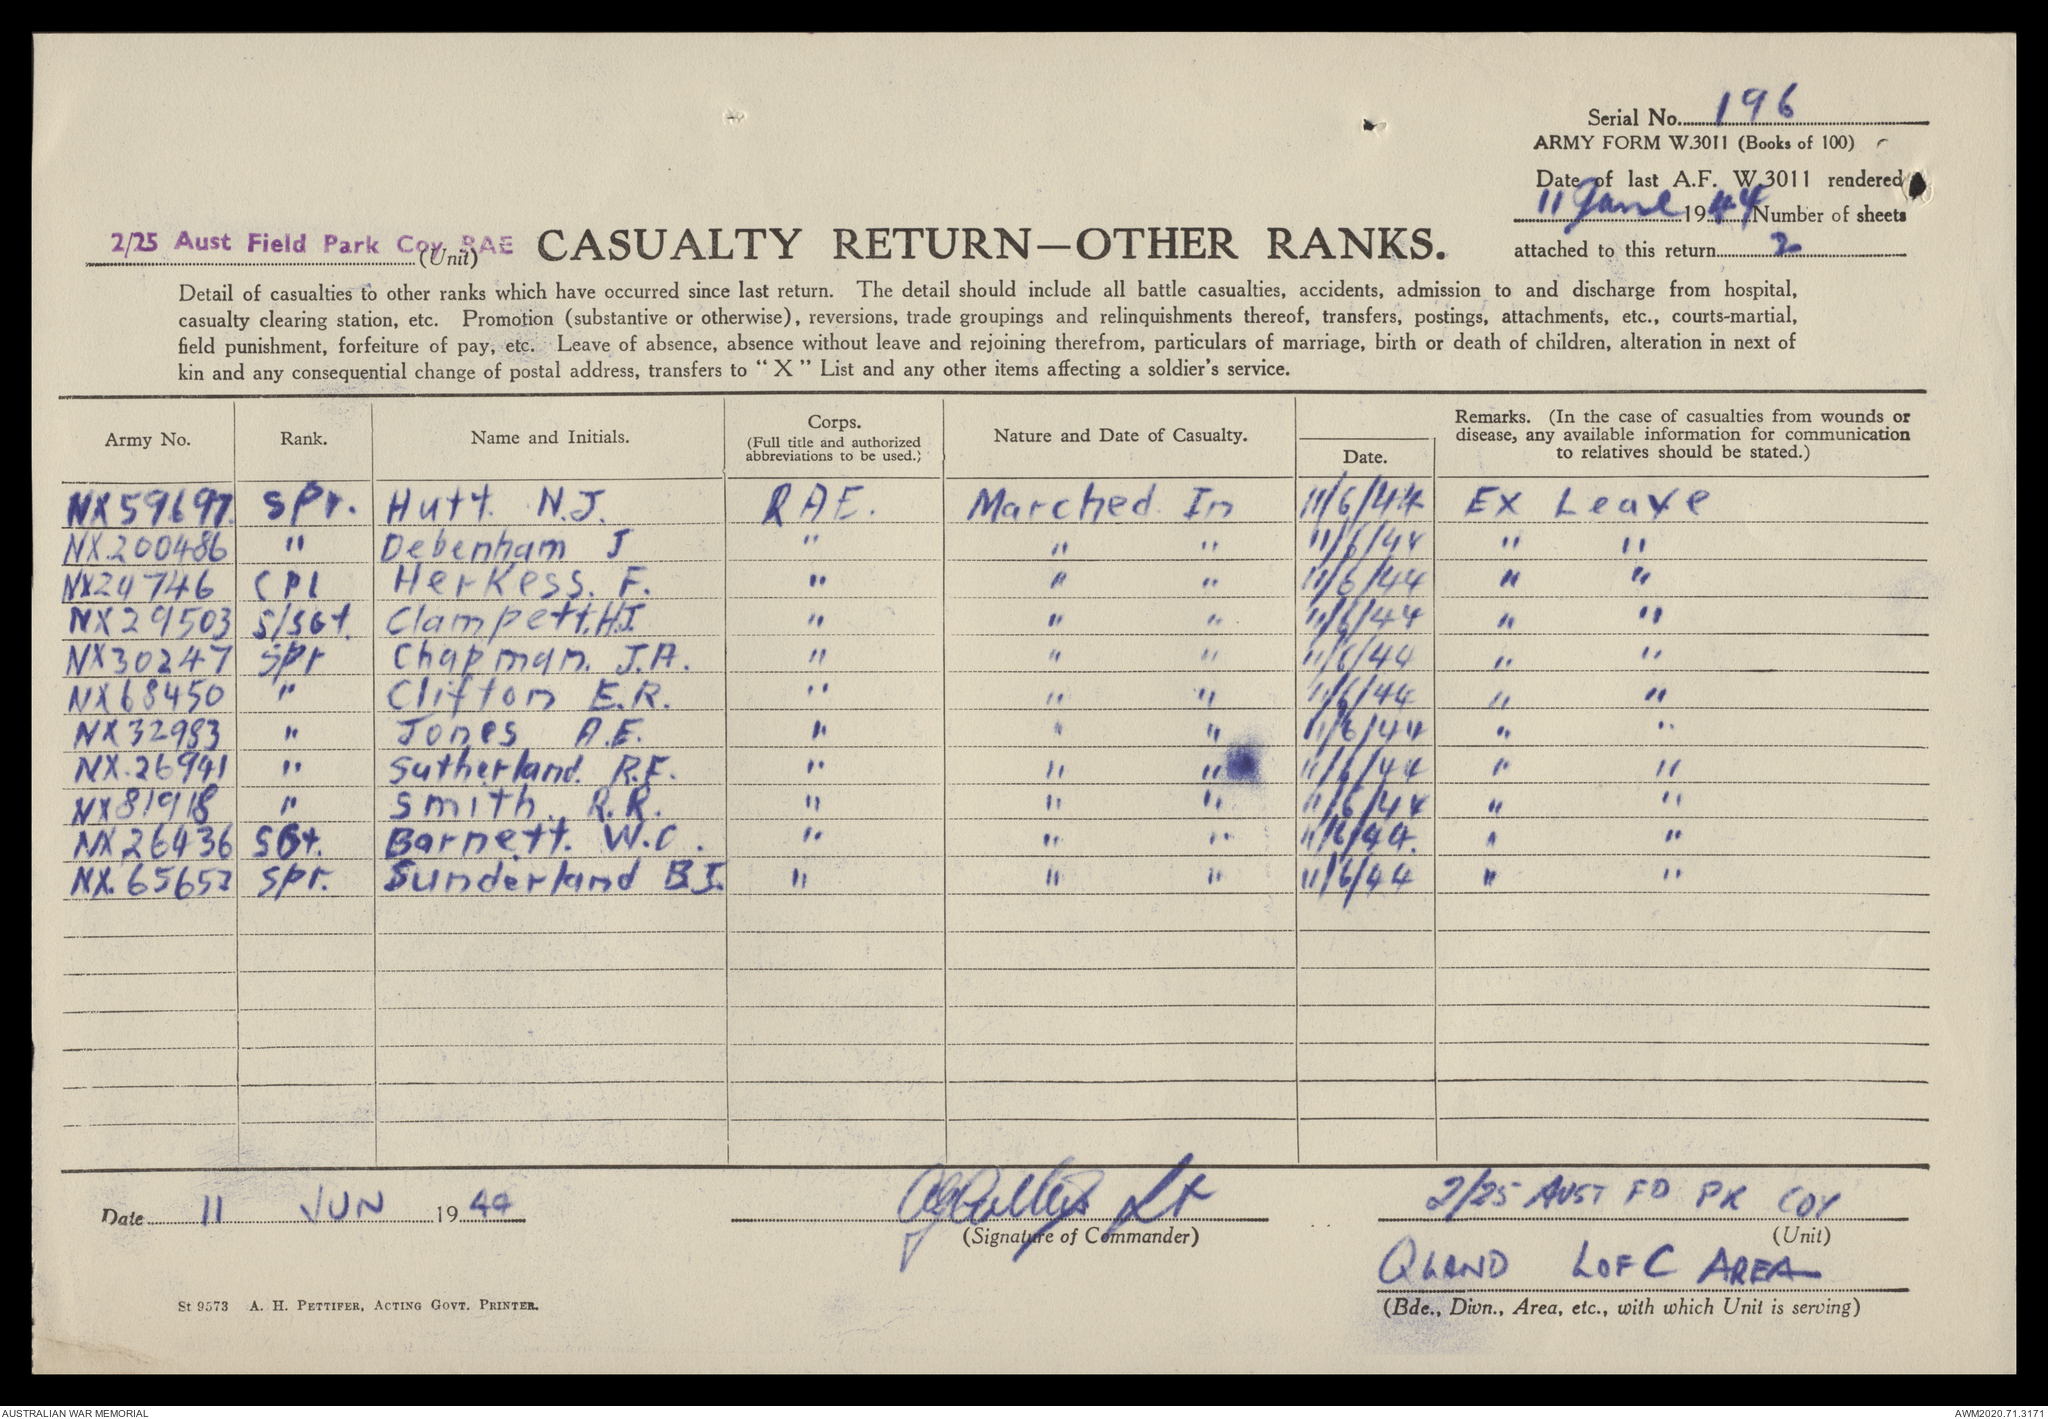 Serial No. 196
ARMY FORM W.3011 (Books of 100)
Date of last A.F. W.3011 rendered
11 June 1944 Number of sheets
attached to this return 2
2/25 Aust Field Park Coy. RAE (Unit)
CASUALTY RETURN—OTHER RANKS.
Detail of casualties to other ranks which have occurred since last return. The detail should include all battle casualties, accidents, admission to and discharge from hospital,
casualty clearing station, etc. Promotion (substantive or otherwise), reversions, trade groupings and relinquishments thereof, transfers, postings, attachments, etc., courts-martial,
field punishment, forfeiture of pay, etc. Leave of absence, absence without leave and rejoining therefrom, particulars of marriage, birth or death of children, alteration in next of
kin and any consequential change of postal address, transfers to "X" List and any other items affecting a soldier's service.
Army No. Rank. Name and Initials. Corps. (Full title and authorized abbreviations to be used.) Nature and Date of Casualty. Date. Remarks. (In the case of casualties from wounds or disease, any available information for communication to relatives should be stated.)
NX59697. Spr. Hutt. N.J. RAE. Marched In 11/6/44 Ex Leave
NX.200486 " Debenham J " " " 11/6/44 " "
NX24746 Cpl Herkess. F. " " " 11/6/44 " "
NX29503 S/Sgt. Clampett. H.J. " " " 11/6/44 " "
NX30247 Spr Chapman. J.A. " " " 11/6/44 " "
NX68450 " Clifton E.R. " " " 11/6/44 " "
NX32983 " Jones A.E. " " " 11/6/44 " "
NX.26941 " Sutherland. R.F. " " " 11/6/44 " "
NX81918 " Smith. R.R. " " " 11/6/44 " "
NX26436 SGt. Barnett. W.C. " " " 11/6/44. " "
NX.65652 Spr. Sunderland B.J. " " " 11/6/44 " "
Date 11 JUN 1944
Lt
(Signature of Commander)
2/25 AUST FD PK COY
(Unit)
QLAND L OF C AREA
(Bde., Divn., Area, etc., with which Unit is serving)
St 9573 A. H. PETTIFER, ACTING GOVT. PRINTER.
AUSTRALIAN WAR MEMORIAL
AWM2020.71.3171